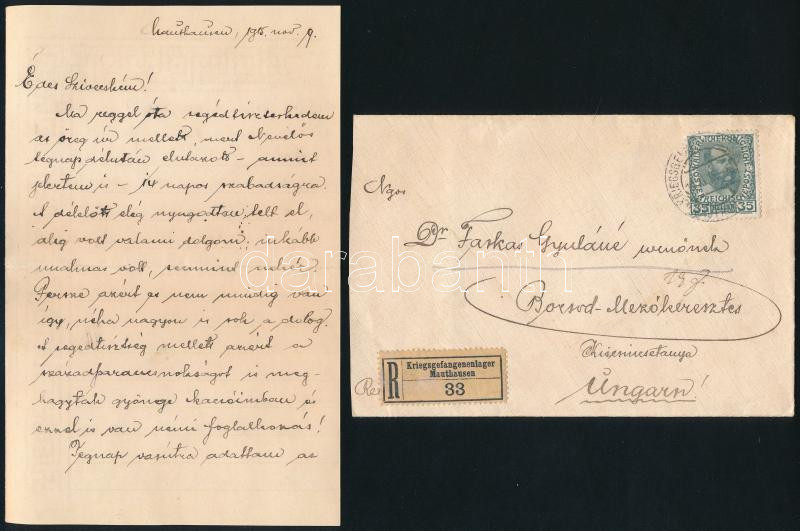 Mauthausen, 915. nov. 9.
Édes Szivecském!
Ma reggel óta segédtiszterkedem
az öreg úr mellett, mert Nevelős
tegnap délután elutazott - amint
jeleztem is - 14 napos szabadságra.
A délelőtt elég nyugodtan telt el,
alig volt valami dolgom; inkább
unalmas volt, semmint nehéz.
Persze azért ez nem mindig van
így, néha nagyon is sok a dolog.
A segédtisztség mellett azért a
századparancsnokságot is meg-
hagyták gyönge kacsóimban és
ezzel is van némi foglalkozás!
Tegnap vasútra adattam az
KRIEGSGEF
35 35
Ngos
Dr Farkas Gyuláné
Borsod-Mezőkeresztes
Ungarn!
R
Kriegsgefangenenlager
Mauthausen
33
darabanth